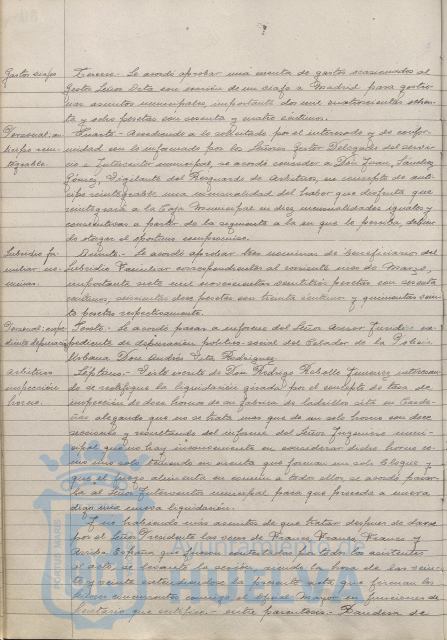 Gastos viaje
Tercero.- Se acordó aprobar una cuenta de gastos ocasionados al
Gestor Señor Deta con ocasión de un viaje a Madrid para gestio-
nar asuntos municipales, importante dos mil cuatrocientas ochen-
ta y ocho pesetas con sesenta y cuatro céntimos.
Personal, an-
ticipo rein-
tegrable.
Cuarto.- Accediendo a lo solicitado por el interesado y de confor-
midad con lo informado por los Señores Gestor Delegado del servi-
cio e Interventor municipal, se acordó conceder a Don Juan Sánchez
Gómez, Vigilante del Resguardo de Arbitrios, en concepto de anti-
cipo reintegrable una mensualidad del haber que disfruta que
reintegrará a la Caja Municipal en diez mensualidades iguales y
consecutivas a partir de la siguiente a la en que lo perciba, debien-
do otorgar el oportuno compromiso.
Subsidio fa-
miliar nó-
minas.
Quinto.- Se acordó aprobar tres nóminas de beneficiarios del
subsidio Familiar correspondientes al corriente mes de Marzo,
importante siete mil novecientas veintitrés pesetas con sesenta
céntimos, seiscientas doce pesetas con treinta céntimos y quinientas cin-
ta pesetas respectivamente.
Personal: expe-
diente depuración
Sexto.- Se acordó pasar a informe del Señor Asesor Jurídico ex-
pediente de depuración político-social del Celador de la Policía
Urbana Don Andrés Rodríguez.
Arbitrios
inspección
hornos.
Séptimo.- Visto escrito de Don Rodrigo Rebollo Jiménez interesan-
do se rectifique la liquidación girada por el concepto de tasa de
inspección de doce hornos de su fábrica de ladrillos sita en
alegando que no se trata mas que de un solo horno con doce
secciones, y resultando del informe del Señor Ingeniero muni-
cipal que no hay inconveniente en considerar dichos hornos co-
mo uno solo teniendo en cuenta que forman un solo bloque y
que el fuego alimenta en común a todos ellos, se acordó pasar-
la al Señor Interventor municipal para que proceda a nueva
una nueva liquidación.
Y no habiendo más asuntos de que tratar después de darse
por el Señor Presidente las voces de Franco, Franco, Franco y
Arriba España que fueron contestadas por todos los asistentes
al acto, se levantó la sesión, siendo la hora de las vein-
te y veinte extendiéndose la presente acta, que firman los
Señores concurrentes conmigo el Oficial Mayor en funciones de
Secretario que certifico.- entre parentesis.- de